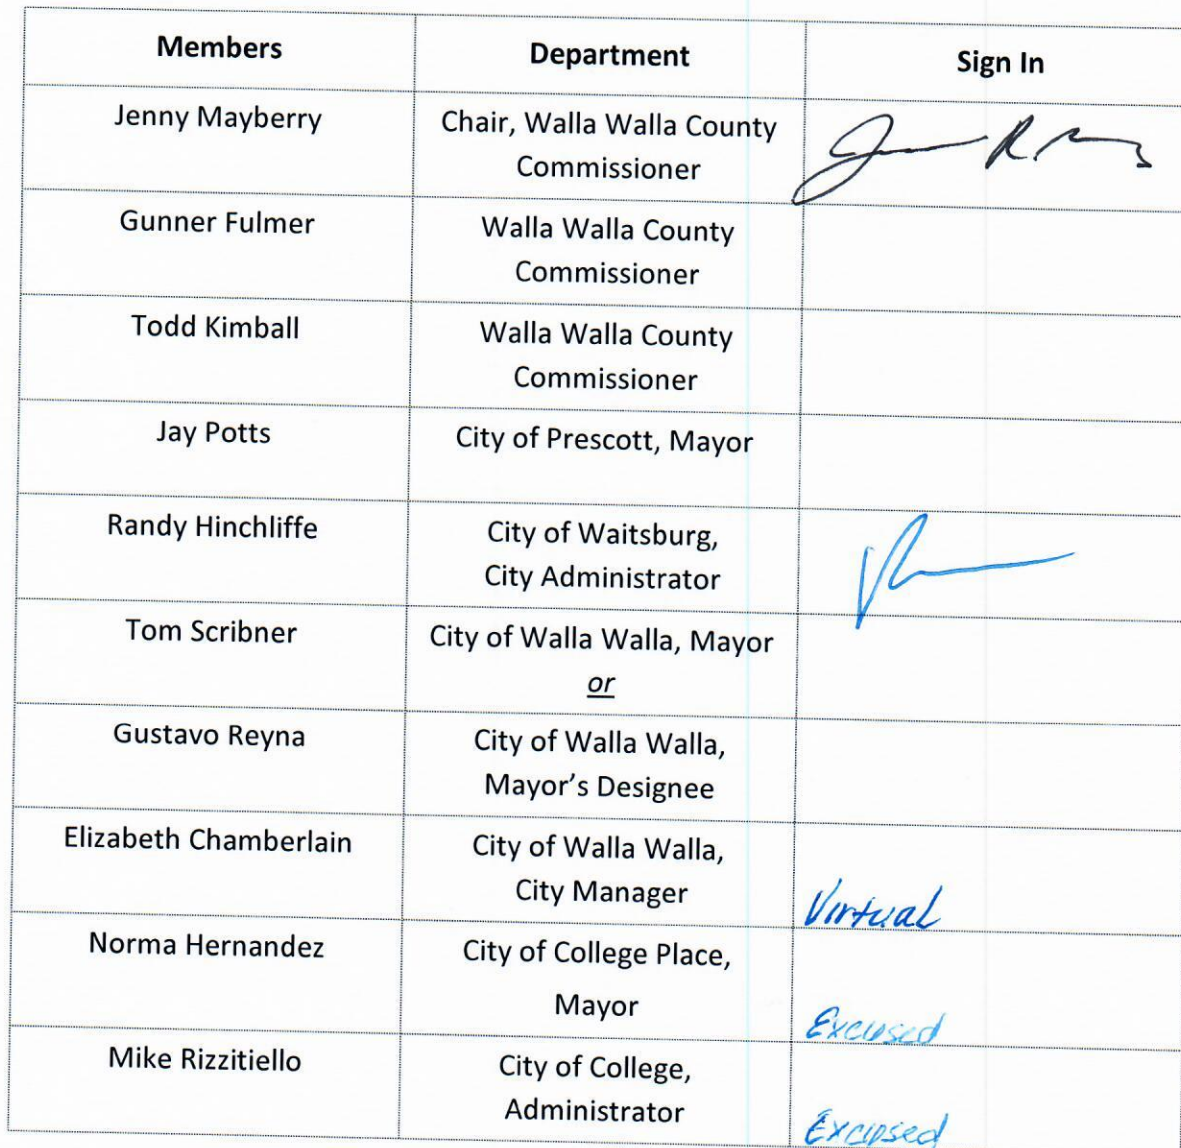 Members Department Sign In
Jenny Mayberry Chair, Walla Walla County
Commissioner
Gunner Fulmer Walla Walla County
Commissioner
Todd Kimball Walla Walla County
Commissioner
Jay Potts City of Prescott, Mayor
Randy Hinchliffe City of Waitsburg,
City Administrator
Tom Scribner City of Walla Walla, Mayor
or
Gustavo Reyna City of Walla Walla,
Mayor's Designee
Elizabeth Chamberlain City of Walla Walla,
City Manager Virtual
Norma Hernandez City of College Place,
Mayor Excused
Mike Rizzitiello City of College,
Administrator Excused